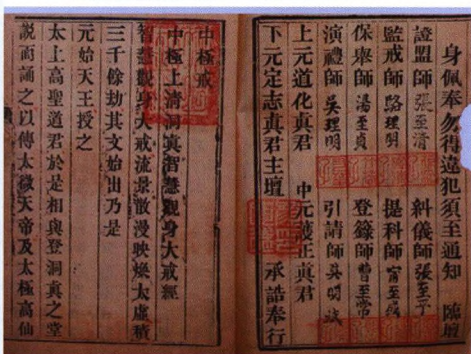 身佩奉勿得違犯須至通知　臨壇
證盟師　張至清　糾儀師　張至
監戒師　駱理明　提科師　甯至
保舉師　湯至貞　登籙師　曹至常
演禮師　吳理明　引請師　吳明
上元道化真君　中元護正真君
下元定志真君主壇　承誥奉行
中極戒
中極上清洞真智慧觀身大戒經
智慧觀身大戒流景散漫映煥太虛積
三千餘劫其文始出乃是
元始天王授之
太上高聖道君於是相與登洞真之堂
說而誦之以傳太微天帝及太極高仙